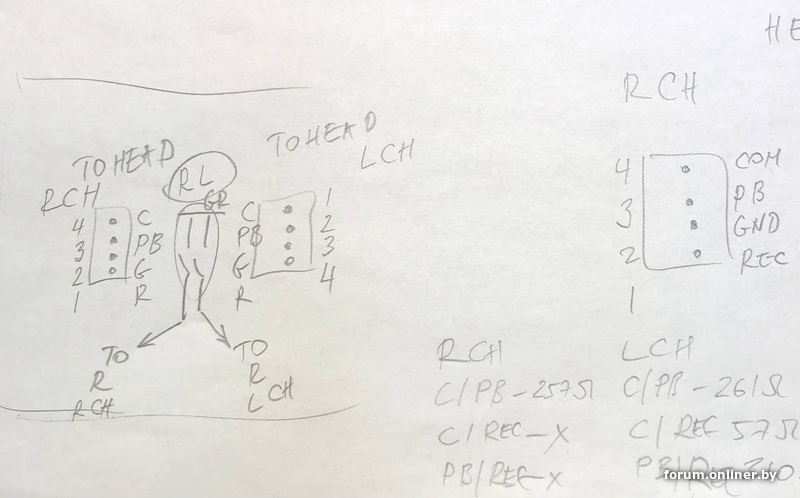 HE
TO HEAD
RCH
RL
GR
TO HEAD
LCH
4 C
3 PB
2 G
1 R
C 1
PB 2
G 3
R 4
TO
R
RCH
TO
R
L CH
RCH
4 COM
3 PB
2 GND
1 REC
RCH
C/PB-257Ω
C/REC-X
PB/REC-X
LCH
C/PB-261Ω
C/REC 57Ω
forum.onliner.by